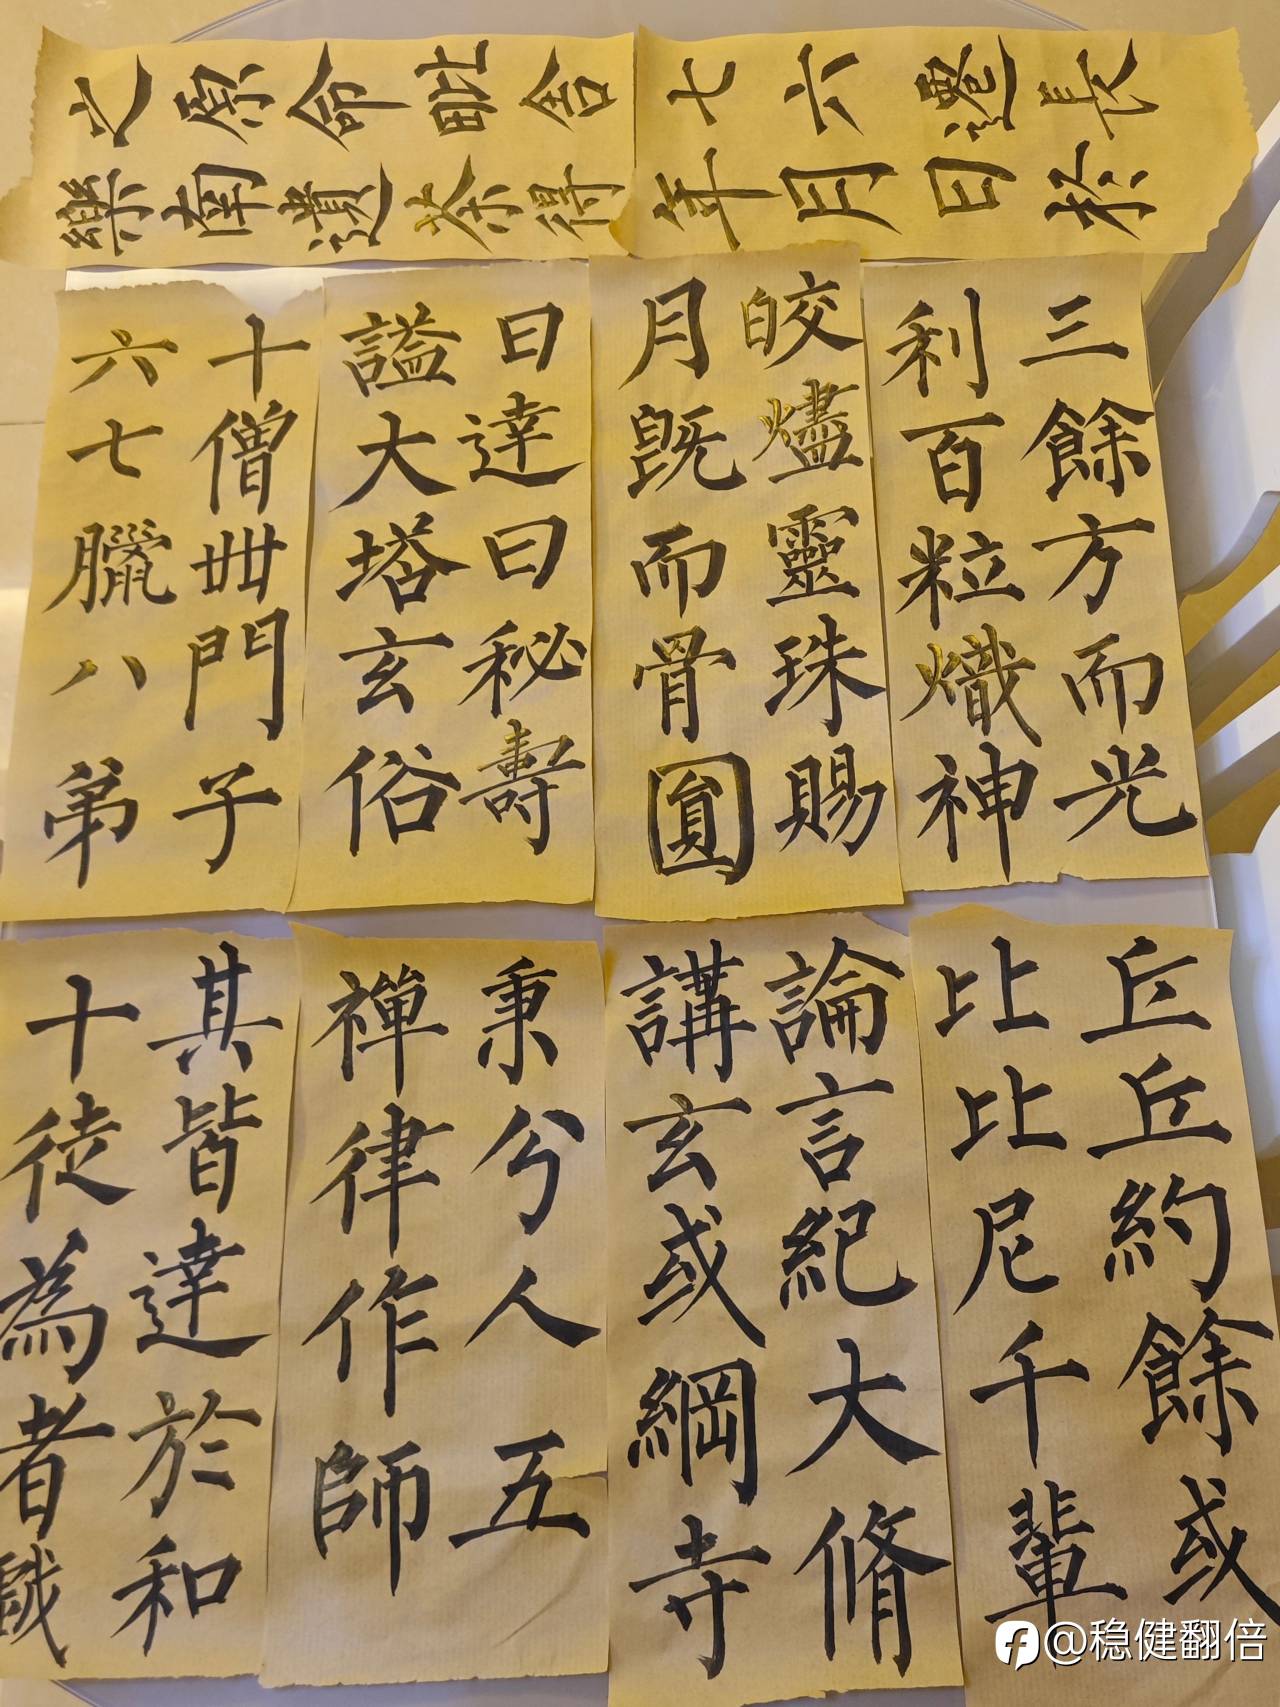 年七
月六
日遷
於長
樂之
南原
遺命
荼毗
得舍
利三
百餘
粒方
熾而
神光
月皎
既燼
而靈
骨珠
圓賜
謚曰
大達
塔曰
玄秘
俗壽
六十
七僧
臘卌
八門
弟子
比丘
比丘
尼約
千餘
輩或
講論
玄言
或紀
綱大
寺脩
禪秉
律兮
作人
師五
十其
徒皆
為達
者於
戲和
@稳健翻倍